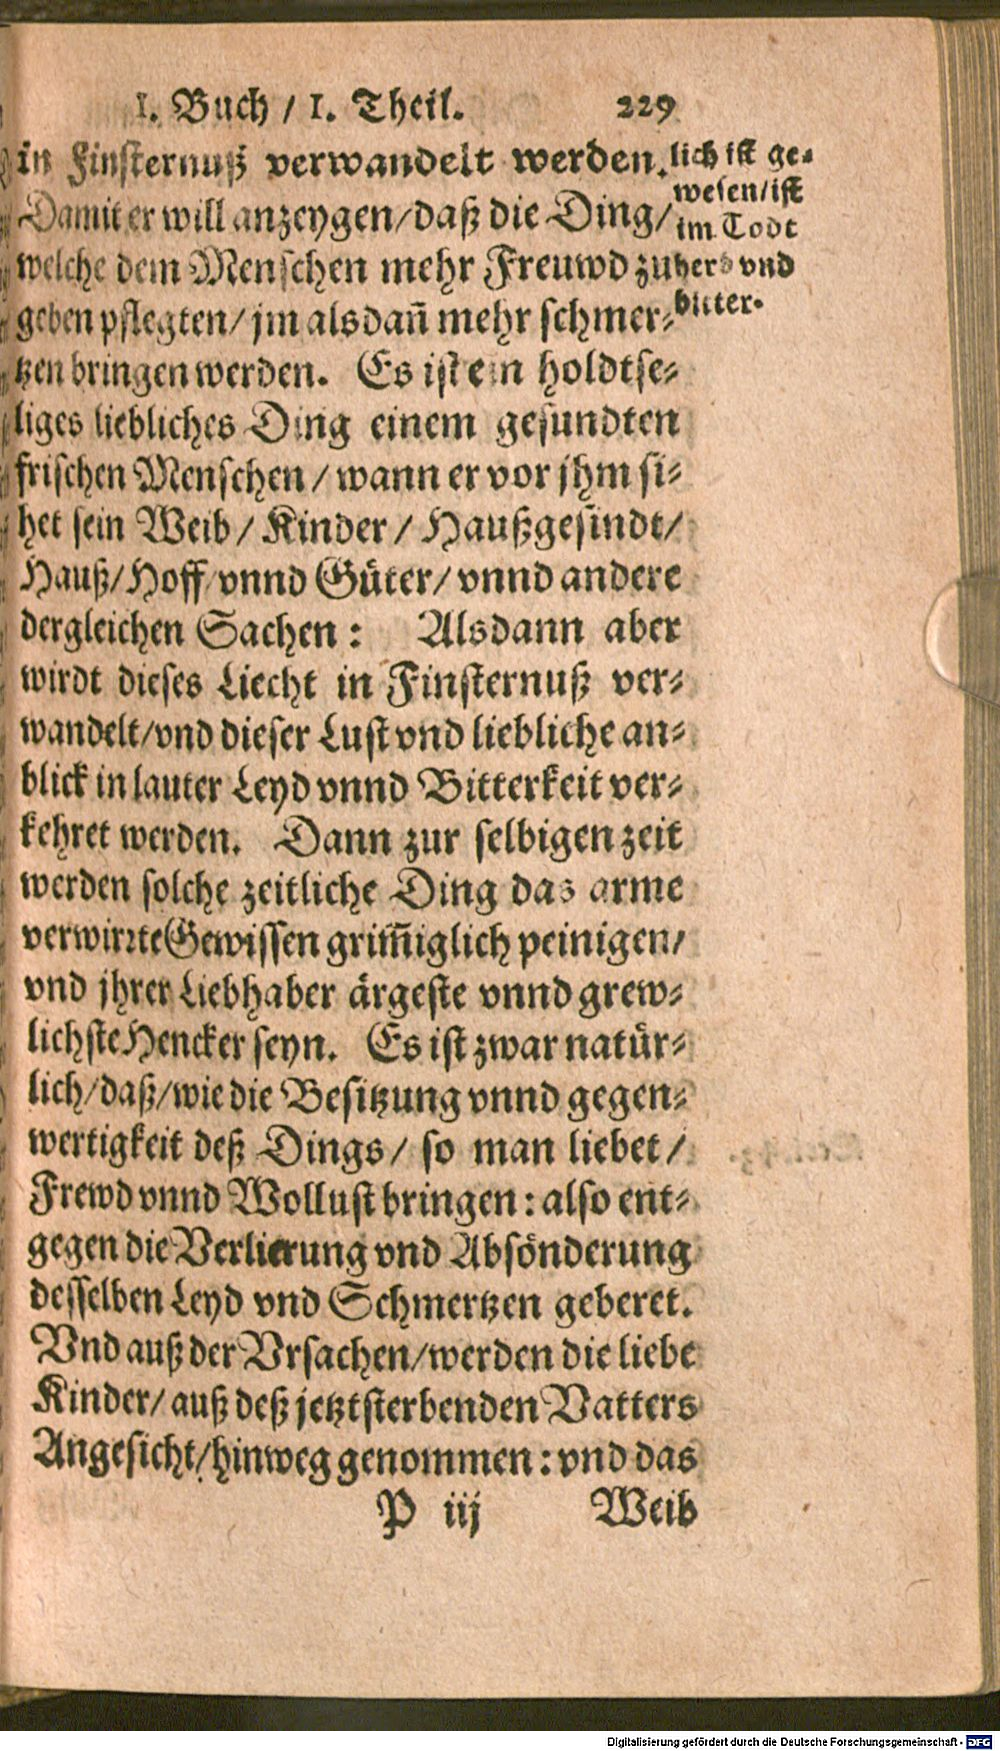 I. Buch / I. Theil. 229
in Finsternuß verwandelt werden.
Damit er will anzeygen/daß die Ding/
welche dem Menschen mehr Freuwd zu
geben pflegten/ jm alsdañ mehr schmer⸗
tzen bringen werden. Es ist ein holdtse⸗
liges liebliches Ding einem gesundten
frischen Menschen / wann er vor jhm si⸗
het sein Weib / Kinder / Haußgesindt/
Hauß/ Hoff/ vnnd Güter/ vnnd andere
dergleichen Sachen: Alsdann aber
wirdt dieses Liecht in Finsternuß ver⸗
wandelt/vnd dieser Lust vnd liebliche an⸗
blick in lauter Leyd vnnd Bitterkeit ver⸗
kehret werden. Dann zur selbigen zeit
werden solche zeitliche Ding das arme
verwirrte Gewissen grim̃iglich peinigen/
vnd jhrer Liebhaber ärgeste vnnd grew⸗
lichste Hencker seyn. Es ist zwar natür⸗
lich/daß/wie die Besitzung vnnd gegen⸗
wertigkeit deß Dings/ so man liebet /
Frewd vnnd Wollust bringen: also ent⸗
gegen die Verlierung vnd Absönderung
desselben Leyd vnd Schmertzen geberet.
Vnd auß der Vrsachen/werden die liebe
Kinder/ auß deß jetzt sterbenden Vatters
Angesicht/hinweg genommen: vnd das
P iij Weib
lich ist ge⸗
wesen/ist
im Todt
vnd
bitter.
Digitalisierung gefördert durch die Deutsche Forschungsgemeinschaft - DFG